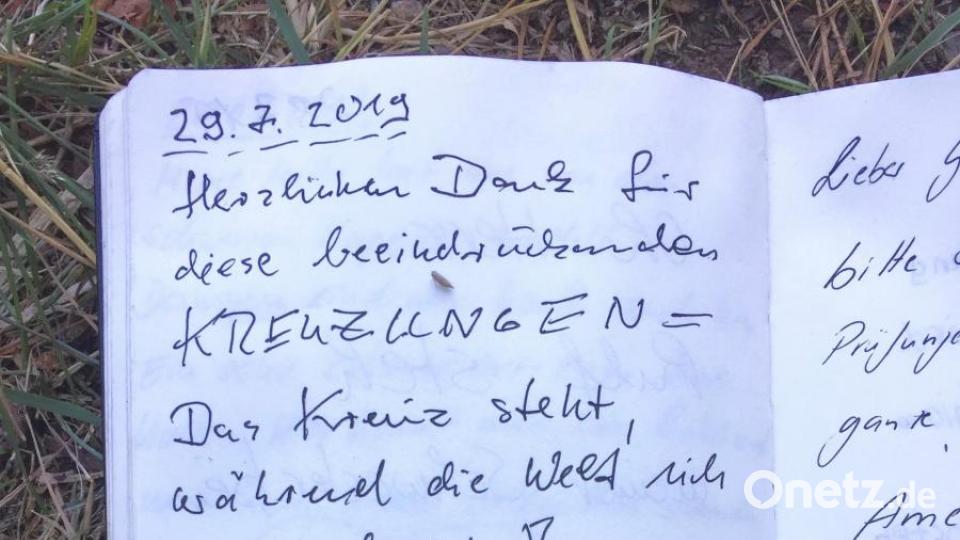 29.7.2019
Herzlichen Dank für
diese beeindruckenden
KREUZUNGEN =
Das Kreuz steht,
während die Welt sich
Lieber
bitte
Prüfung
ganze,
Ame
Onetz.de